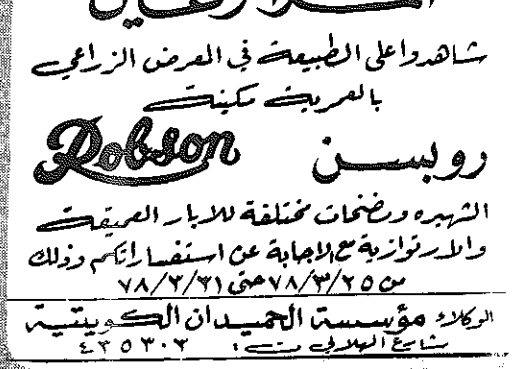 شاهدوا على الطبيعة في المعرض الزراعي
بالعمرية مكينة
روبسن Robson
الشهيره ومضخات مختلفة للابار العميقة
والارتوازية مع الاجابة عن استفساراتكم وذلك
من ٧٨/٣/٢٥ حتى ٧٨/٣/٣١
الوكلاء مؤسسة الحميدان الكويتية
شارع الهلالي ت: ٤٣٥٣٠٢